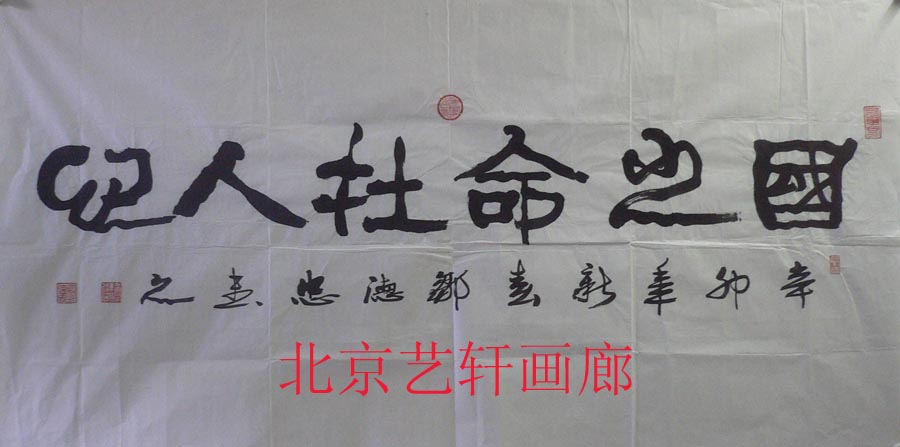 國之命在人心
辛卯年新春鄒德忠書之
北京艺轩画廊